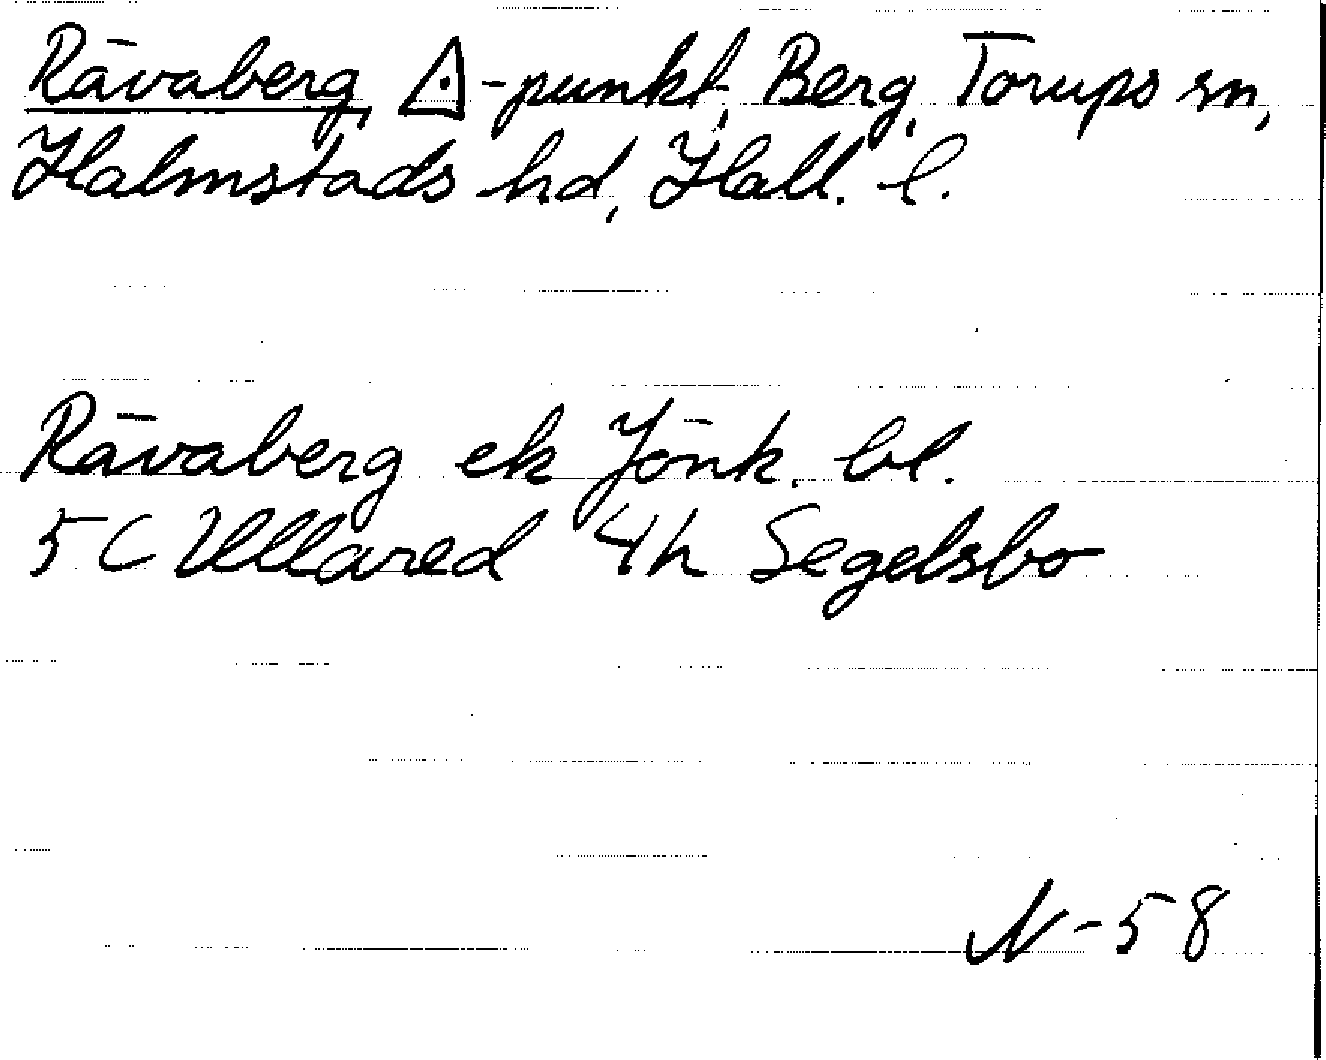 Rävaberg, △-punkt, Berg, Torups sn,
Halmstads hd, Hall. l.
Rävaberg ek Jönk. bl.
5C Ullared 4h Segelsbo
N-58